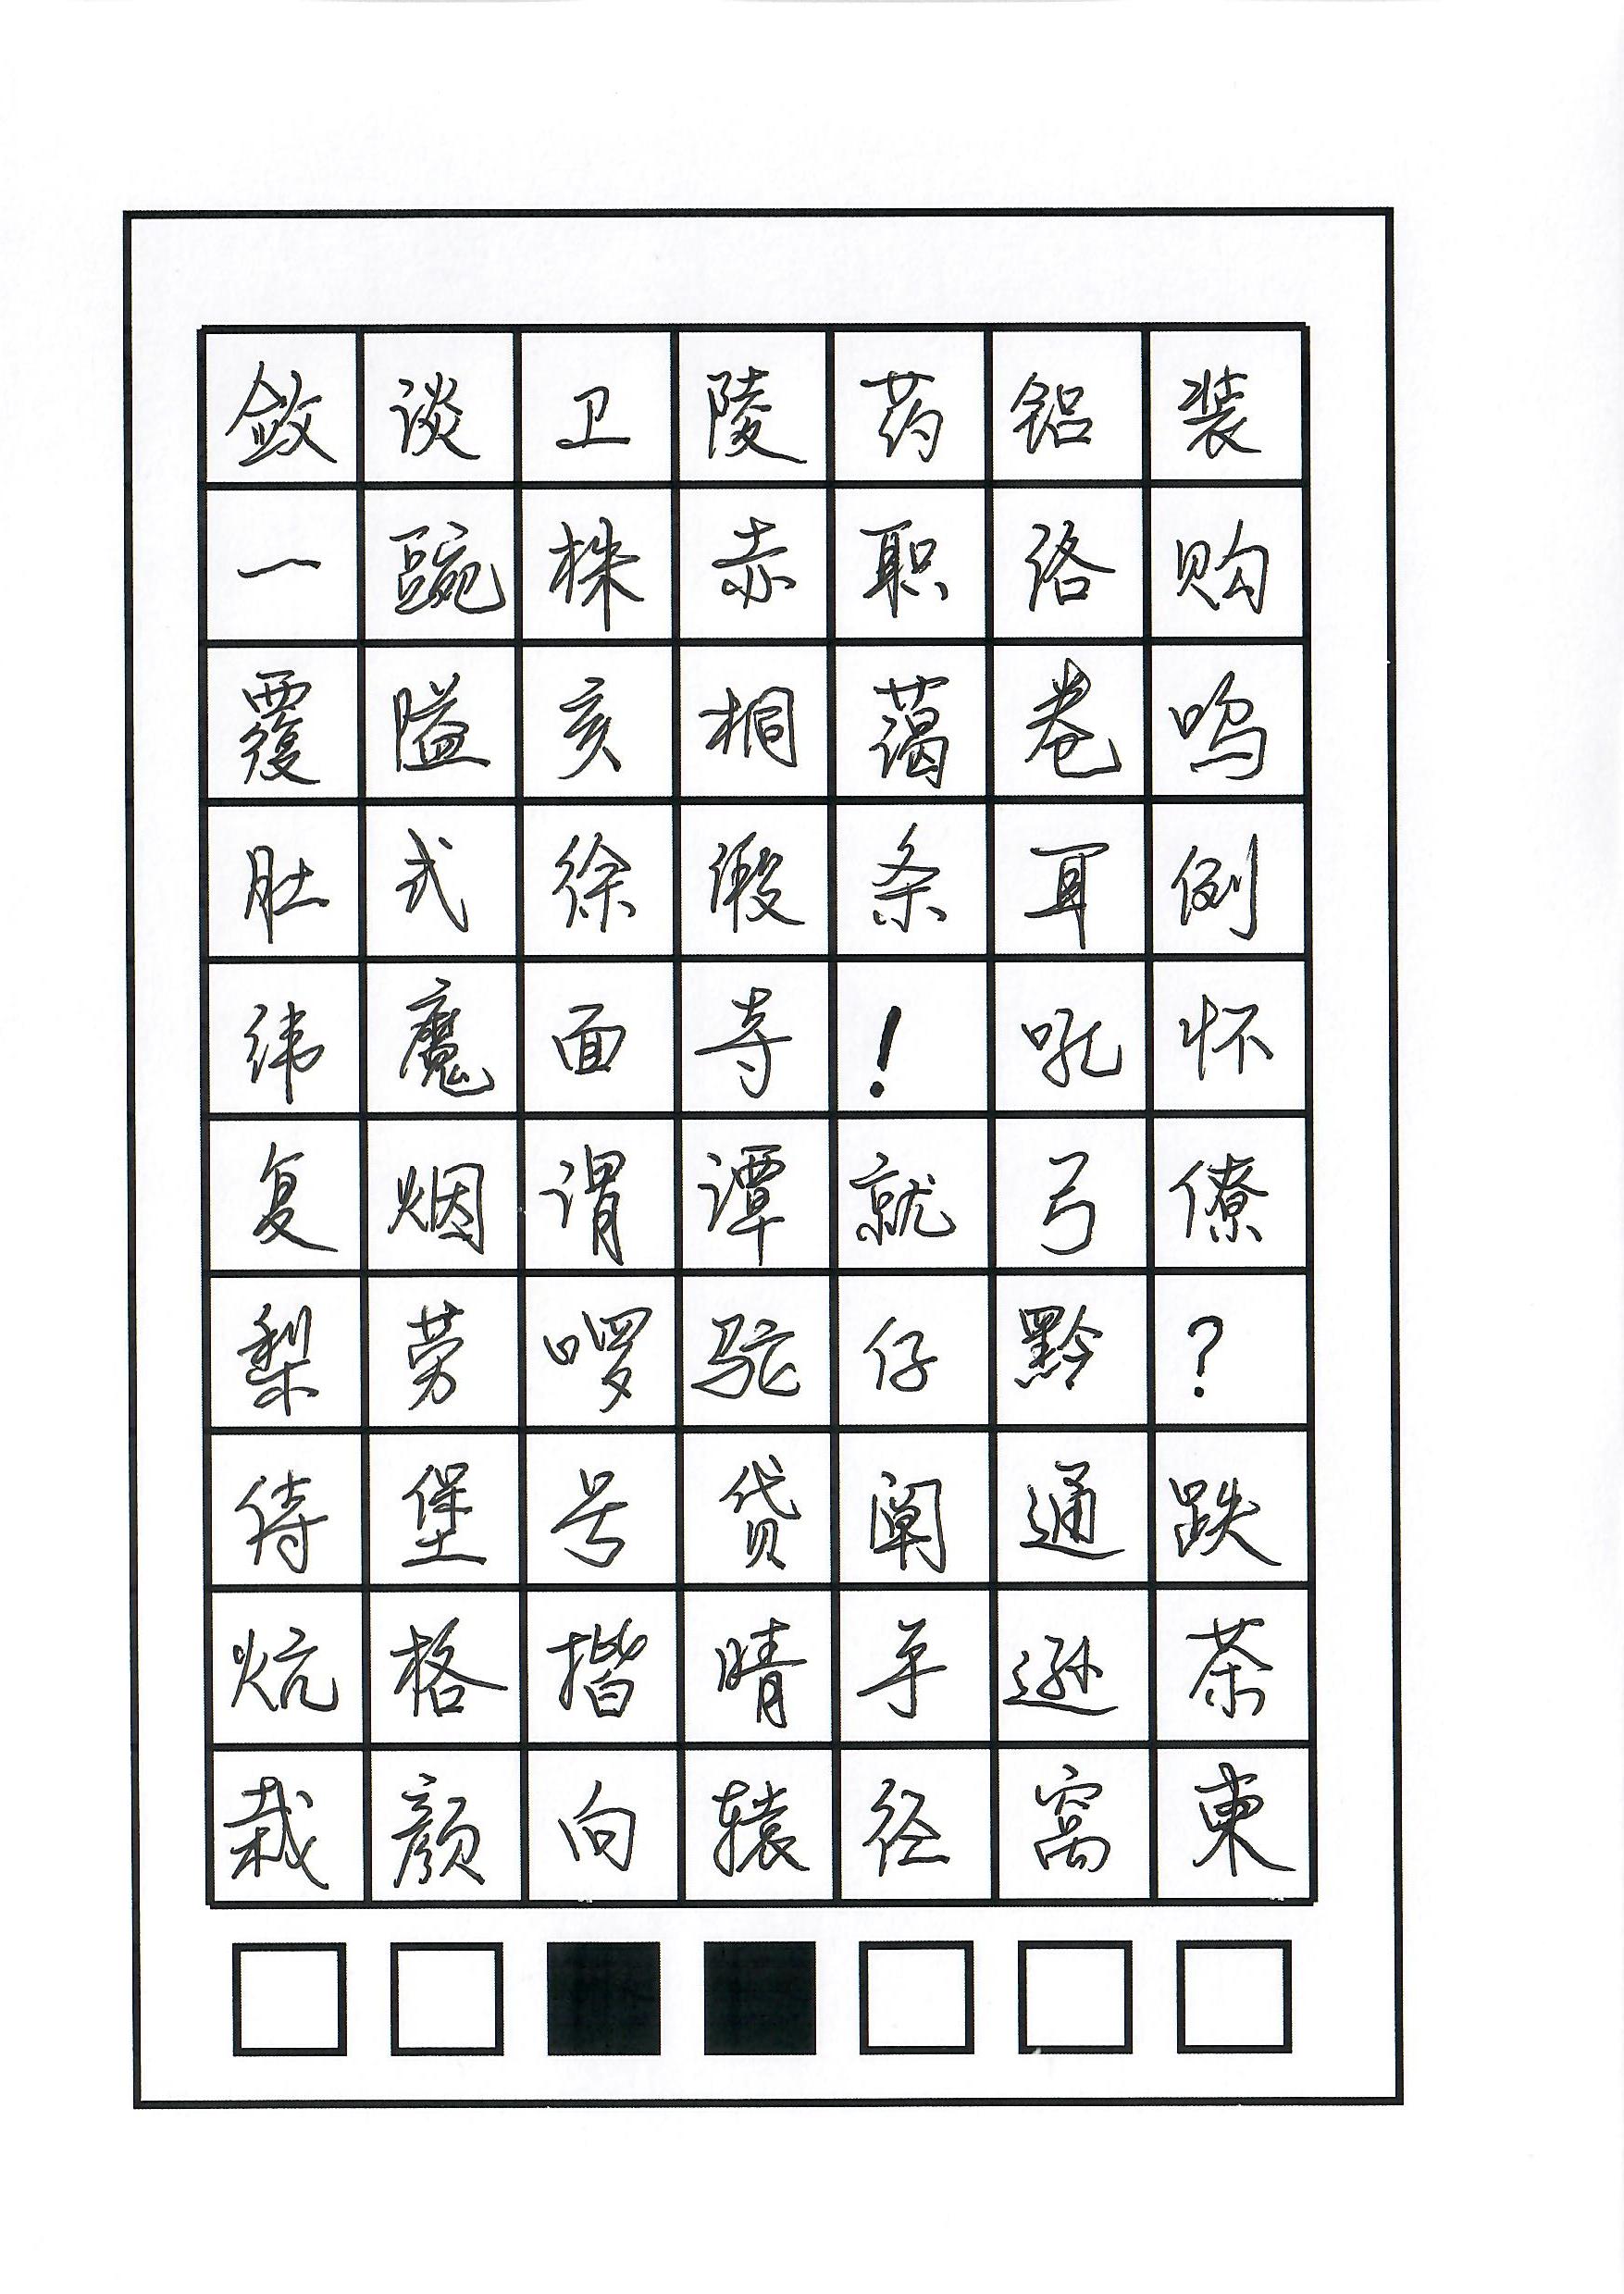 敛谈卫陵药铝装
一豌株赤职洛购
覆隘亥桐蔼卷呜
肚式徐缎条耳例
纬魔面寺！吼怀
复烟谓谭就弓僚
梨劳啰驼仔黔？
待堡号贷阐通跌
炕格揩晴手逊茶
栽颜向辕径窝東